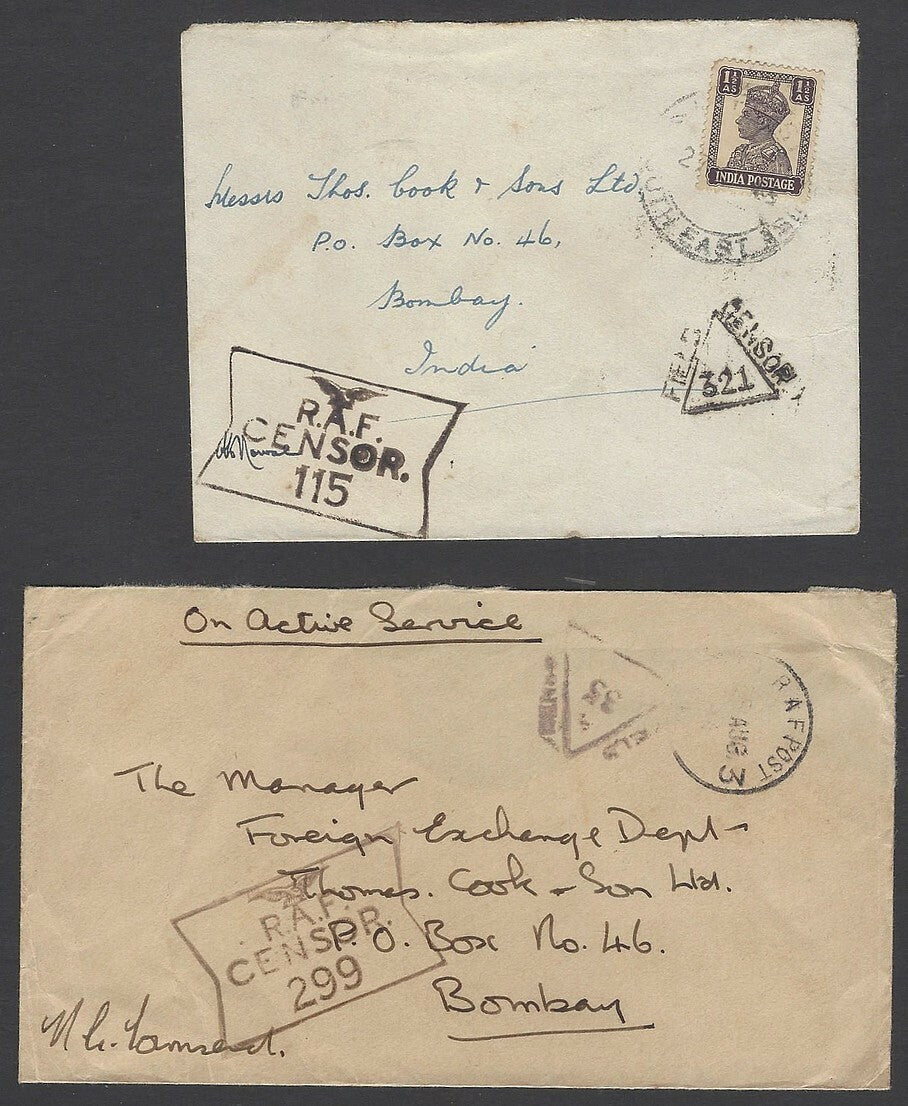 1½ AS 1½ AS
INDIA POSTAGE
SOUTH EAST ASI
Messrs Thos. Cook & Sons Ltd.
P.O. Box No. 46,
Bombay.
India
FIELD CENSOR
321
R.A.F.
CENSOR.
115
On Active Service
35
RAFPOST
AUG 3
The Manager
Foreign Exchange Dept
Thomas. Cook & Son Ltd.
P.O. Box No. 46.
Bombay
R.A.F.
CENSOR.
299
N.G. Townsend.